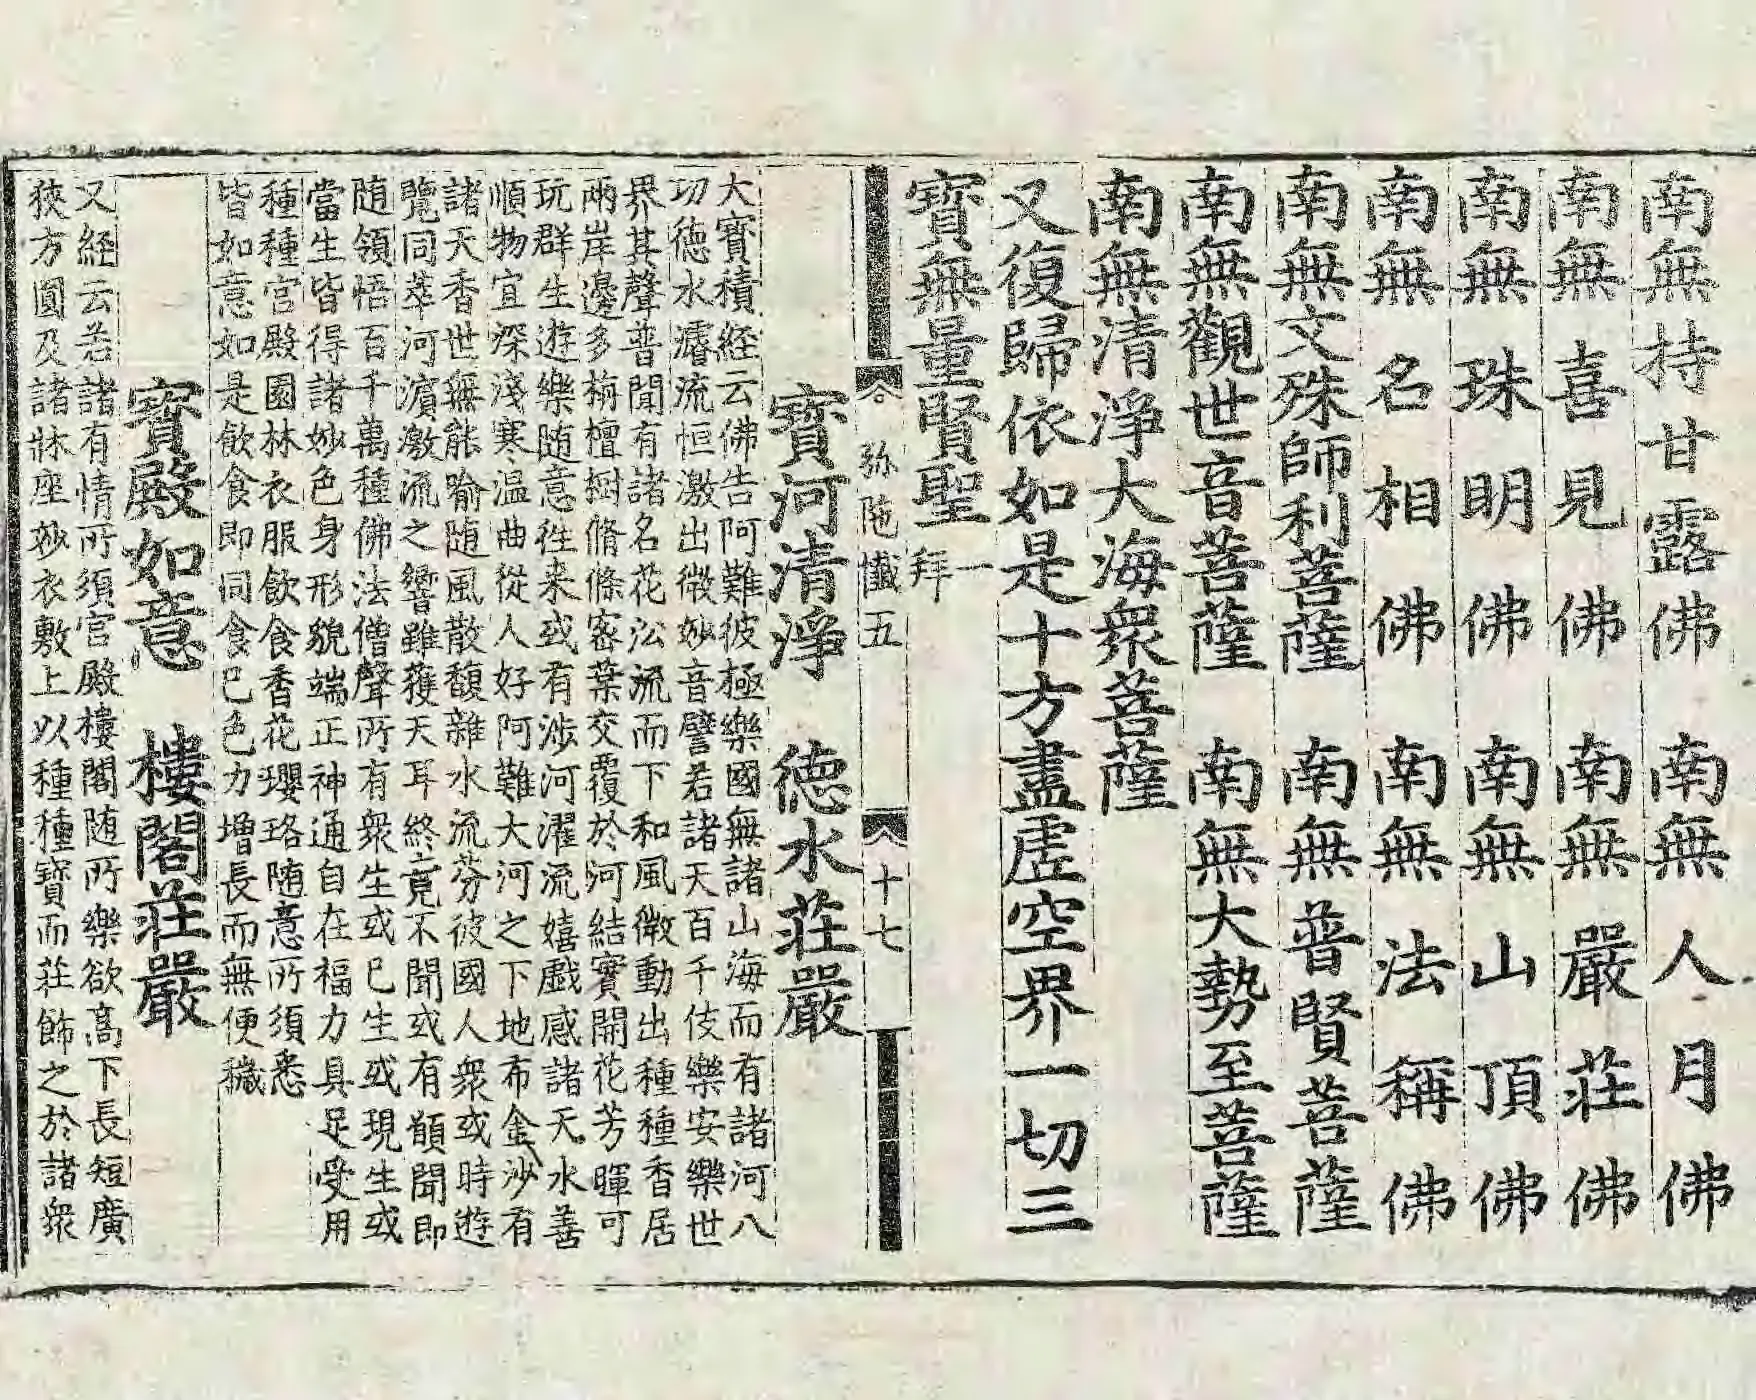 南無持甘露佛　南無人月佛
南無喜見佛　南無嚴莊佛
南無珠明佛　南無山頂佛
南無名相佛　南無法稱佛
南無文殊師利菩薩　南無普賢菩薩
南無觀世音菩薩　南無大勢至菩薩
南無清淨大海衆菩薩
又復歸依如是十方盡虛空界一切三
寶無量賢聖一拜
弥陁懺五　十七
寶河清淨　德水莊嚴
大寶積経云佛告阿難彼極樂國無諸山海而有諸河八
功德水濬流恒激出微妙音譬若諸天百千伎樂安樂世
界其聲普聞有諸名花㳂流而下和風微動出種種香居
兩岸邊多栴檀樹脩條密葉交覆於河結實開花芳暉可
玩群生遊樂随意徃来或有渉河濯流嬉戯感諸天水善
順物宜深淺寒温曲從人好阿難大河之下地布金沙有
諸天香世無能喻随風散馥雜水流芬彼國人衆或時遊
覽同萃河濵激流之響雖獲天耳終竟不聞或有願聞即
随領悟百千萬種佛法僧聲所有衆生或已生或現生或
當生皆得諸妙色身形貌端正神通自在福力具足受用
種種宮殿園林衣服飲食香花瓔珞随意所須悉
皆如意如是飲食即同食已色力増長而無便穢
寶殿如意　樓閣莊嚴
又経云若諸有情所須宮殿樓閣随所樂欲高下長短廣
狹方圓及諸牀座妙衣敷上以種種寶而莊飾之於諸衆